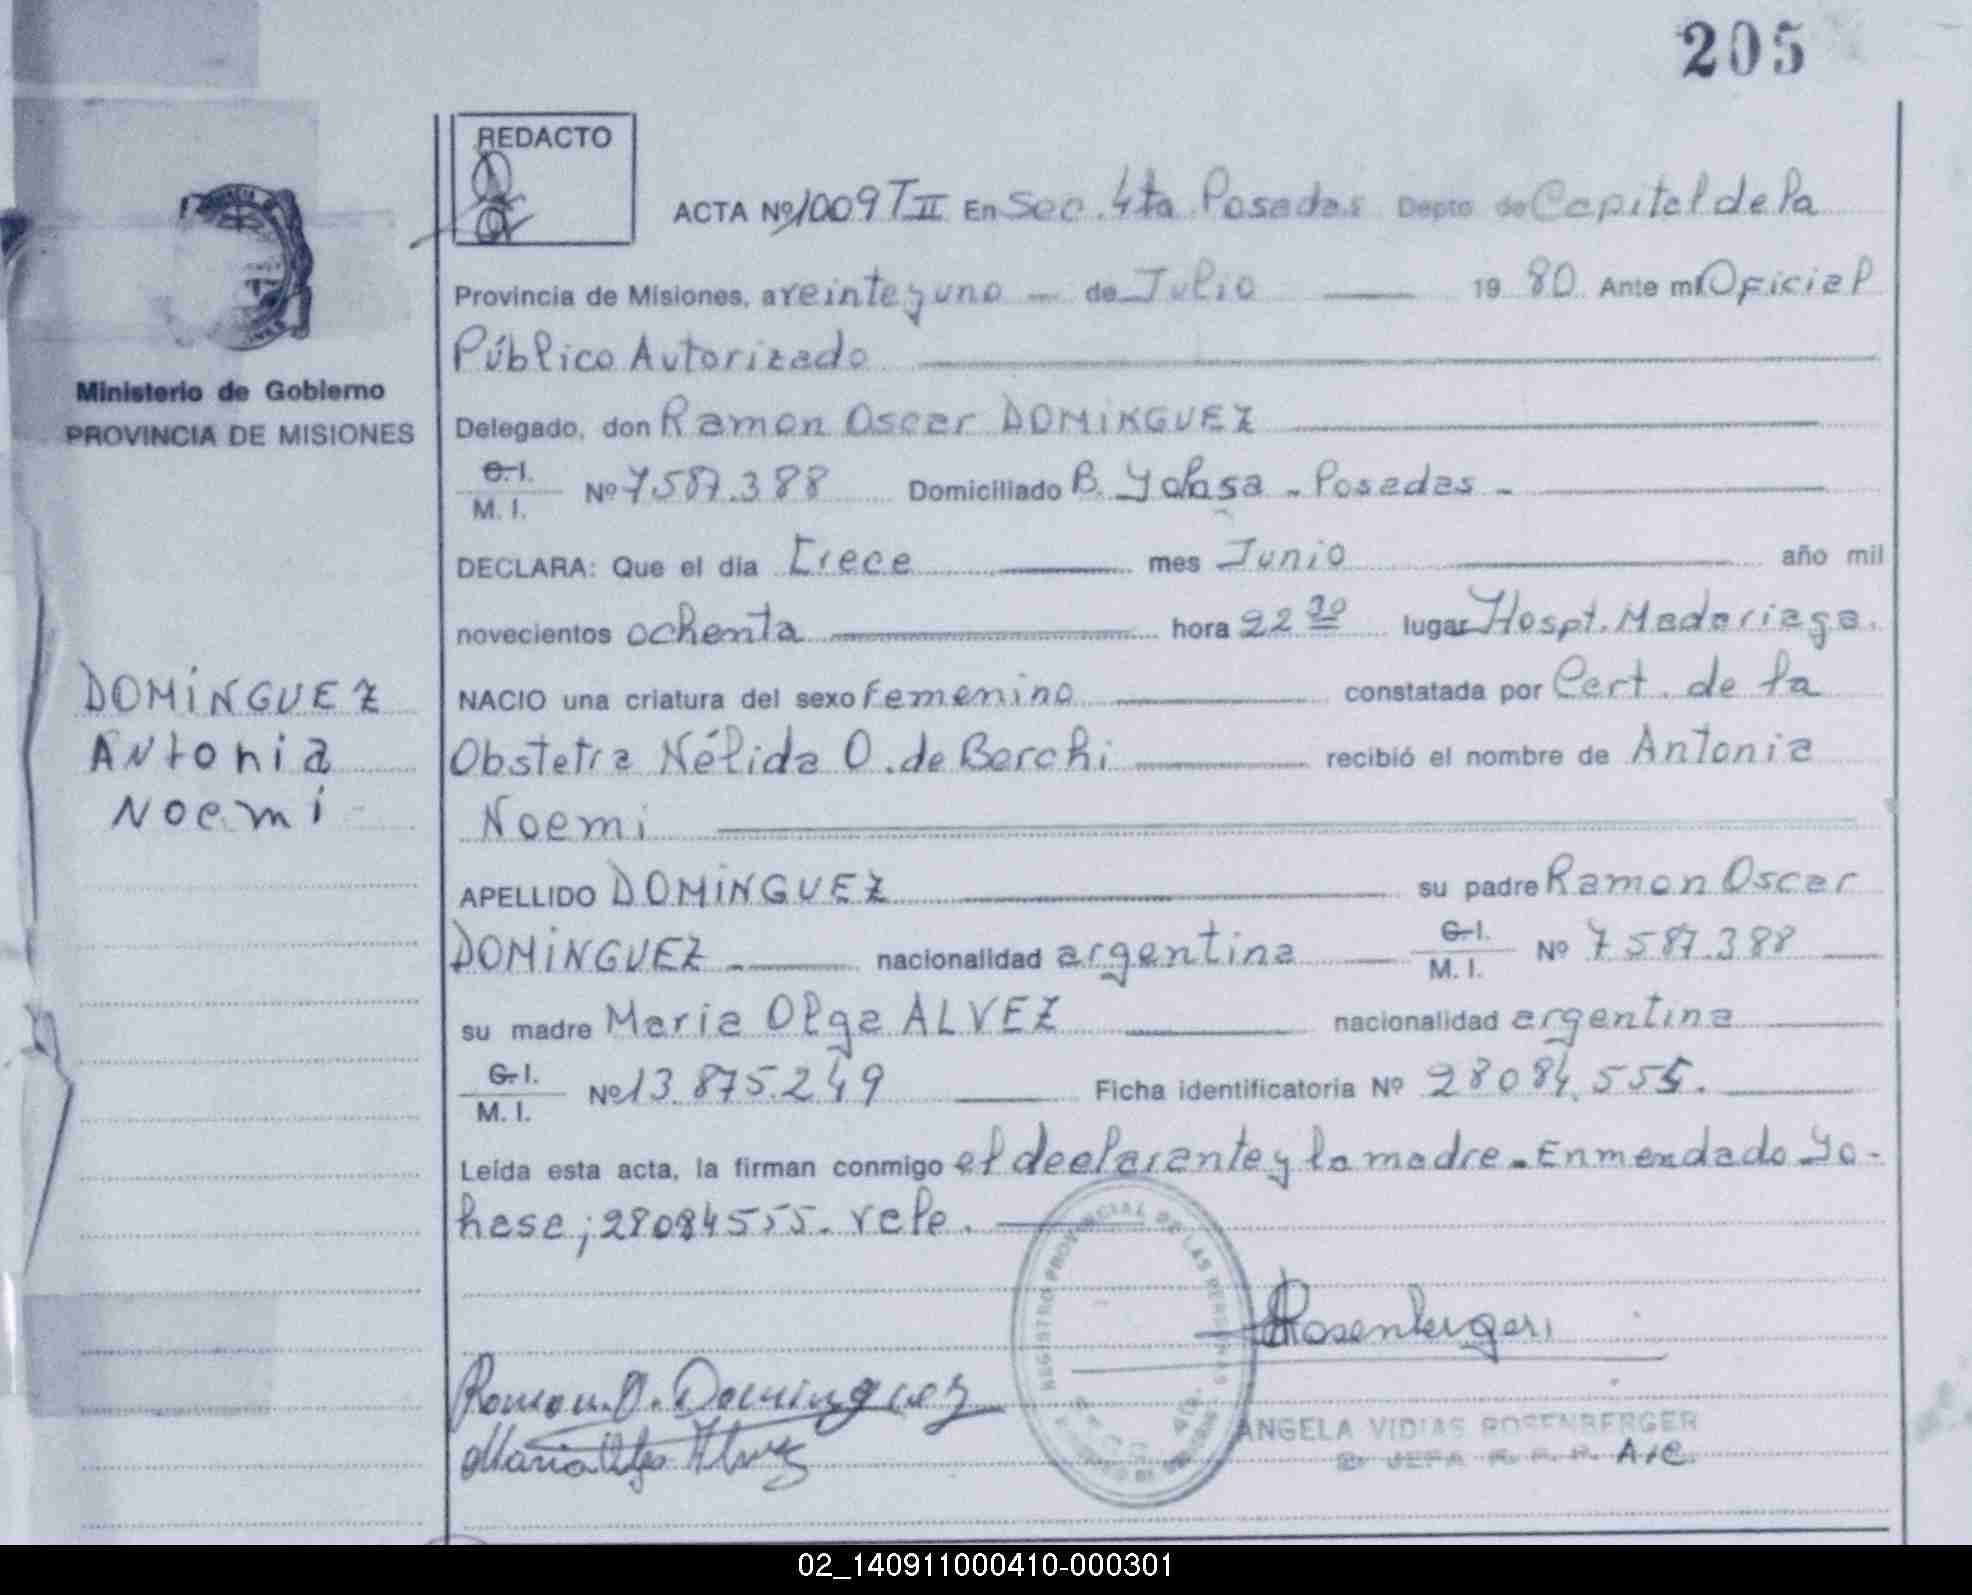 205
REDACTO
ACTA Nº 1009 T II En Sec. 4ta Posadas Depto de Capital de la
Provincia de Misiones, a veinte y uno de Julio 19 80. Ante mi Oficial
Público Autorizado
Ministerio de Gobierno
PROVINCIA DE MISIONES
Delegado, don Ramon Oscar DOMINGUEZ
C.I.
M. I. Nº 7587.388 Domiciliado B. - Posadas -
DECLARA: Que el día trece mes Junio año mil
novecientos ochenta hora 22 30 lugar Hospt. Madariaga.
DOMINGUEZ
Antonia
Noemi
NACIO una criatura del sexo Femenino constatada por Cert. de la
Obstetra Nélida O. de Berchi recibió el nombre de Antonia
Noemi
APELLIDO DOMINGUEZ su padre Ramon Oscar
DOMINGUEZ nacionalidad argentina C.I.
M. I. Nº 7587.388
su madre Maria Olga ALVEZ nacionalidad argentina
C.I.
M. I. Nº 13.875.249 Ficha identificatoria Nº 28084.555.
Leída esta acta, la firman conmigo el declarante y la madre. Enmendado
28084555. vale.
REGISTRO PROVINCIAL DE LAS PERSONAS
Rosenberger
Ramon. O. Dominguez
Maria Olga Alvez
ANGELA VIDIAS ROSENBERGER
JEFA A/C.
02_140911000410-000301